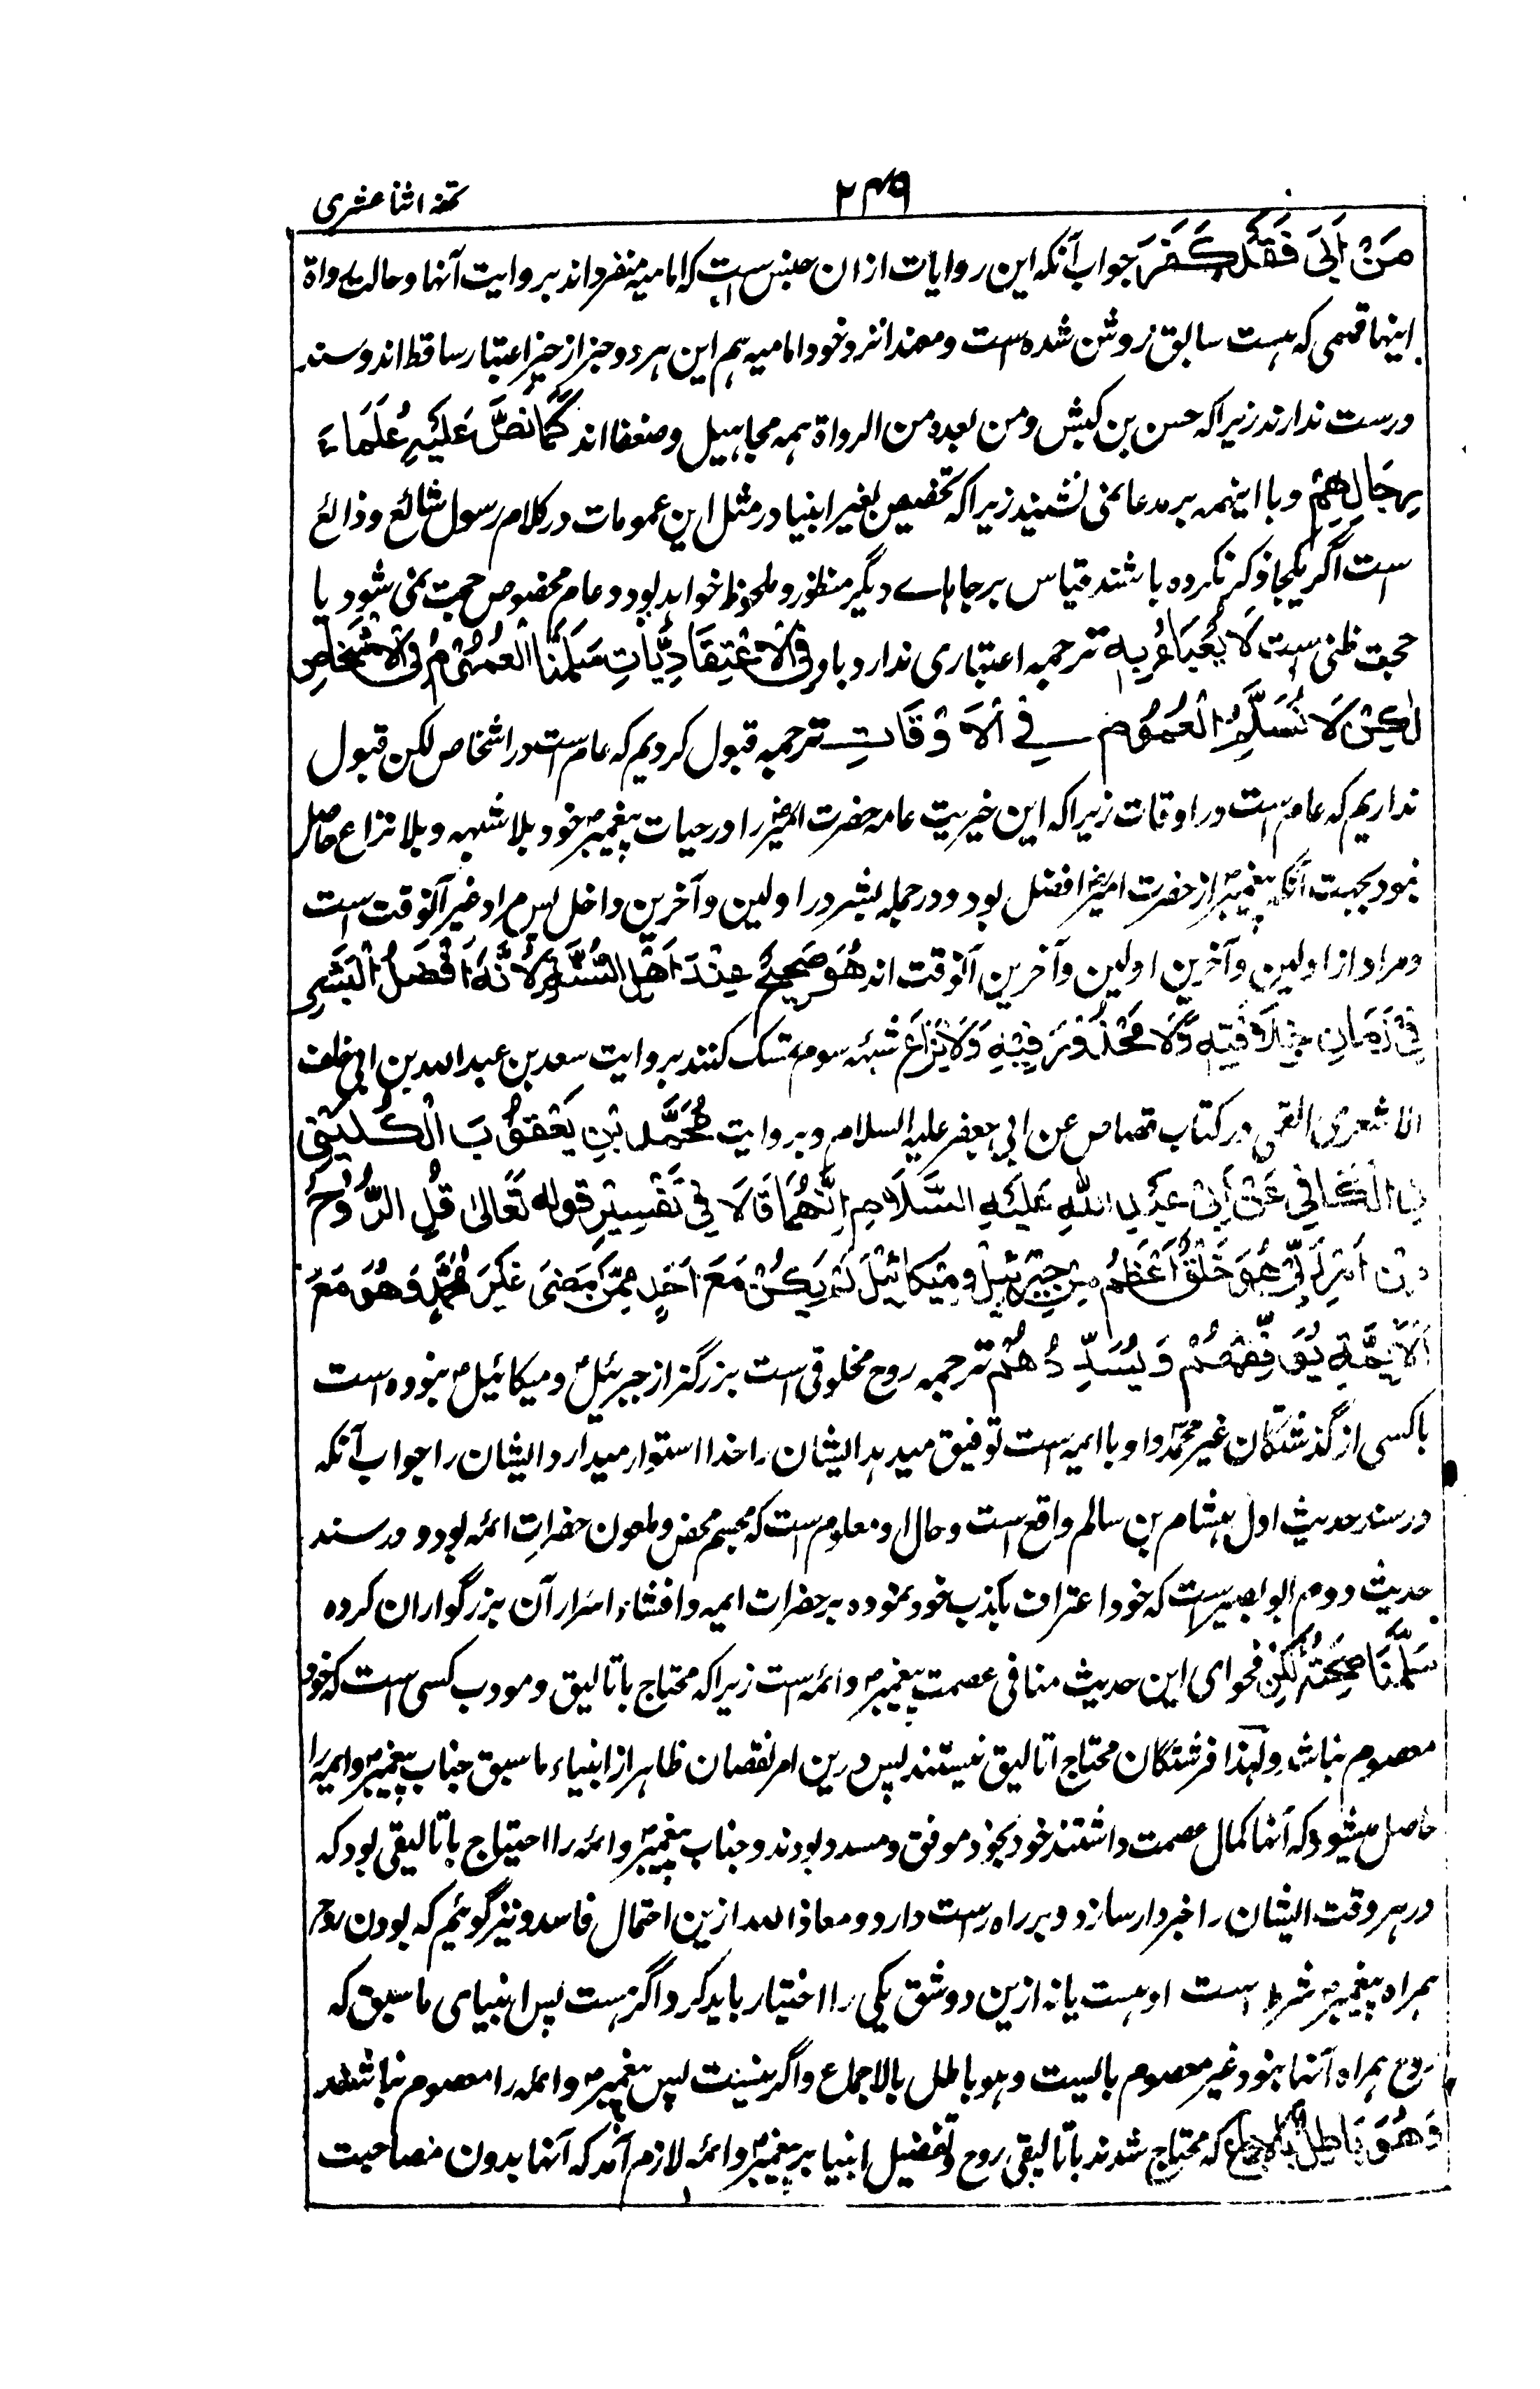 تحفه اثنا عشری
۲۴۹
مَنْ اَبٰی فَقَدْ کَفَرَ جواب آنکه این روایات ازان جنس ست که امامیه منفرد اند بروایت آنها و حالت رواة
اینها قسمی که هست سابق روشن شده است و معهذا نزد خود امامیه هم این هر دو خبر از حیز اعتبار ساقط اند و سند
درست ندارند زیرا که حسن بن کبش ومن بعده من الرواة همه مجاهیل و ضعفا اند کَمَا نَصَّ عَلَیْهِ عُلَمَاءُ
رِجَالِهِمْ و با اینهمه بر مدعا نمی نشیند زیرا که تخصیص بغیر انبیا در مثل این عمومات در کلام رسول شائع و ذائع
است اگر یکجا ذکر نکرده باشند قیاس بر جاهاے دیگر منظور و ملحوظ خواهد بود و عام مخصوص حجت نمی شود یا
حجت ظنی ست لَا یُعْبَأُ بِهٖ ترجمه اعتباری ندارد باو فِی الْاِعْتِقَادِیَّاتِ سَلَّمْنَا الْعُمُوْمَ فِی الْاَشْخَاصِ
لٰکِنْ لَا نُسَلِّمُ الْعُمُوْمَ فِی الْاَوْقَاتِ ترجمه قبول کردیم که عام ست در اشخاص لکن قبول
نداریم که عام ست در اوقات زیرا که این خیریت عامه حضرت امیر را در حیات پیغمبر خود بلا شبهه و بلا نزاع حاصل
نبود بجهت آنکه پیغمبر از حضرت امیر افضل بود و در جمله بشر در اولین و آخرین داخل پس مراد غیر آنوقت است
و مراد از اولین و آخرین اولین و آخرین آنوقت اند هُوَ صَحِیْحٌ عِنْدَ اَهْلِ السُّنَّةِ لِاَنَّهٗ اَفْضَلُ الْبَشَرِ
فِیْ زَمَانِ خِلَافَتِهٖ وَلَا مَحْذُوْرَ فِیْهِ وَلَا نِزَاعَ شبهه سوم تمسک کنند بروایت سعد بن عبدالله بن ابی خلف
الاشعری القمی در کتاب عن ابی جعفر علیه السلام و بروایت مُحَمَّدِ بْنِ یَعْقُوْبَ الْکُلَیْنِی
فِی الْکَافِی عَنْ اَبِیْ عَبْدِ اللهِ عَلَیْهِ السَّلَامِ اِنَّهُمَا قَالَا فِی تَفْسِیْرِ قوله تَعَالٰی قُلِ الرُّوْحُ
مِنْ اَمْرِ رَبِّیْ هُوَ خَلْقٌ اَعْظَمُ مِنْ جِبْرَئِیْلَ و مِیْکَائِیْلَ لَمْ یَکُنْ مَعَ اَحَدٍ مِمَّنْ مَضٰی غَیْرَ مُحَمَّدٍ وَهُوَ مَعَ
الْاَئِمَّةِ یُوَفِّقُهُمْ وَ یُسَدِّدُهُمْ ترجمه روح مخلوقی است بزرگتر از جبرئیل و میکائیل نبوده است
با کسی از گذشتگان غیر محمد و او با ایمه است توفیق میدهد ایشان را خدا استوار میدارد ایشان را جواب آنکه
در سند حدیث اول هشام بن سالم واقع ست و حال او معلوم ست که مجسم محض و ملعون حضرات ائمه بود و در سند
حدیث دوم ابو بصیر ست که خود اعتراف بکذب خود نموده بر حضرات ایمه و افشاء اسرار آن بزرگواران کرده
سَلَّمْنَا صِحَّتَهُ لٰکِنْ فحوای این حدیث منافی عصمت پیغمبر و ائمه ست زیرا که محتاج باتالیق و مودب کسی است که خود
معصوم نباشد و لهذا فرشتگان محتاج اتالیق نیستند پس درین امر نقصان ظاهر از انبیاء ما سبق جناب پیغمبر و ایمه را
حاصل میشود که آنها کمال عصمت داشتند خود بخود موفق و مسدد بودند و جناب پیغمبر و ائمه را احتیاج باتالیقی بود که
در هر وقت ایشان را خبردار سازد و بر راه راست دارد و معاذ الله ازین احتمال فاسد و نیز گوئیم که بودن روح
همراه پیغمبر شرط است او هست یا نه ازین دو شق یکی را اختیار باید کرد اگر هست پس انبیای ما سبق که
روح همراه آنها نبود غیر معصوم بالیست و هو باطل بالاجماع و اگر نیست پس پیغمبر و ائمه را معصوم نباشند
وَهُوَ بَاطِلٌ بِالْاِجْمَاعِ که محتاج شدند باتالیقی روح و تفضیل انبیا بر پیغمبر و ائمه لازم آمد که آنها بدون مصاحبت